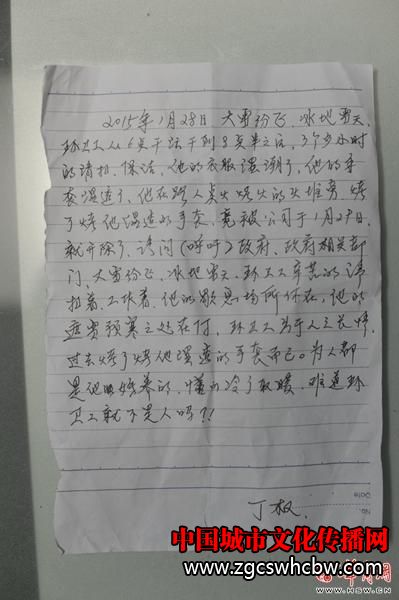 2015年1月28日 大雪纷飞,冰地雪天,
环卫工从6点干活干到8点半之后,3个多小时
的清扫、保洁,他的衣服湿潮了,他的手
套湿透了,他在路人点火烧火的火堆旁,烤
了烤他湿透的手套,竟被公司于1月29日
就开除了,请问(呼吁)政府、政府相关部
门,大雪纷飞,冰地雪天,环卫工辛苦的清
扫着,工作着,他的歇息场所何在,他的
避寒之处在何,环卫工为于人之长情,
过去烤了烤他湿透的手套而已。为人都
是他妈妈养的,懂的冷了取暖,难道环
卫工就不是人吗?!
丁权.
Date
No.
中国城市文化传播网
www.zgcswhcbw.com
华商网
WWW.HSW.CN